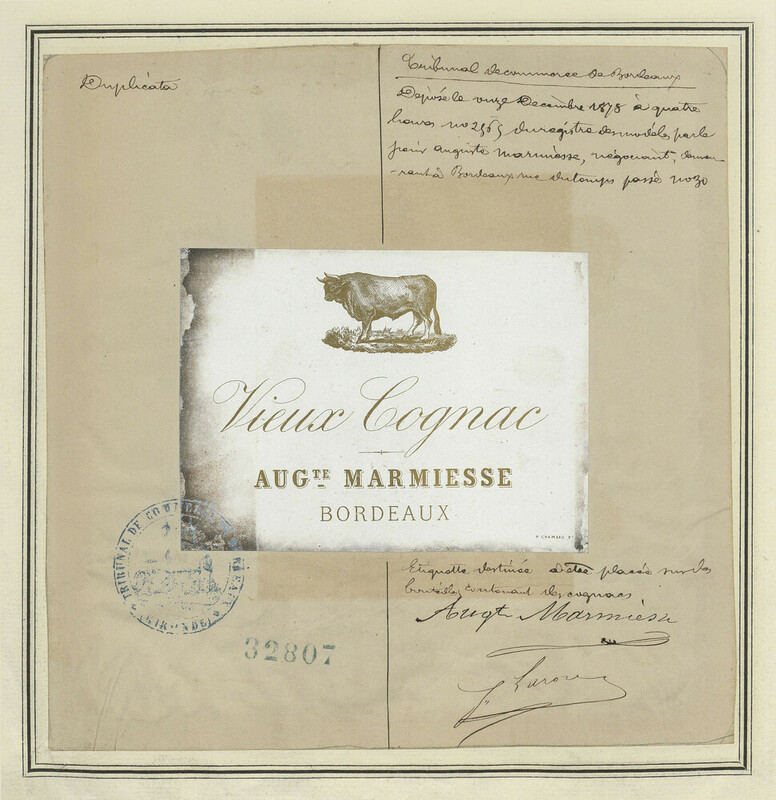 Duplicata
Tribunal de commerce de Bordeaux
Déposé le onze Décembre 1878 à quatre
heures no 2565 du registre des modèles par le
sieur auguste marmiesse, négociant, demeu
-rant à Bordeaux rue du temps passé no 30
Vieux Cognac
AUGTE MARMIESSE
BORDEAUX
TRIBUNAL DE COMMERCE DE BORDEAUX
(GIRONDE)
32807
Etiquette destinée à être placée sur des
bouteilles contenant des cognacs
Augte Marmiesse